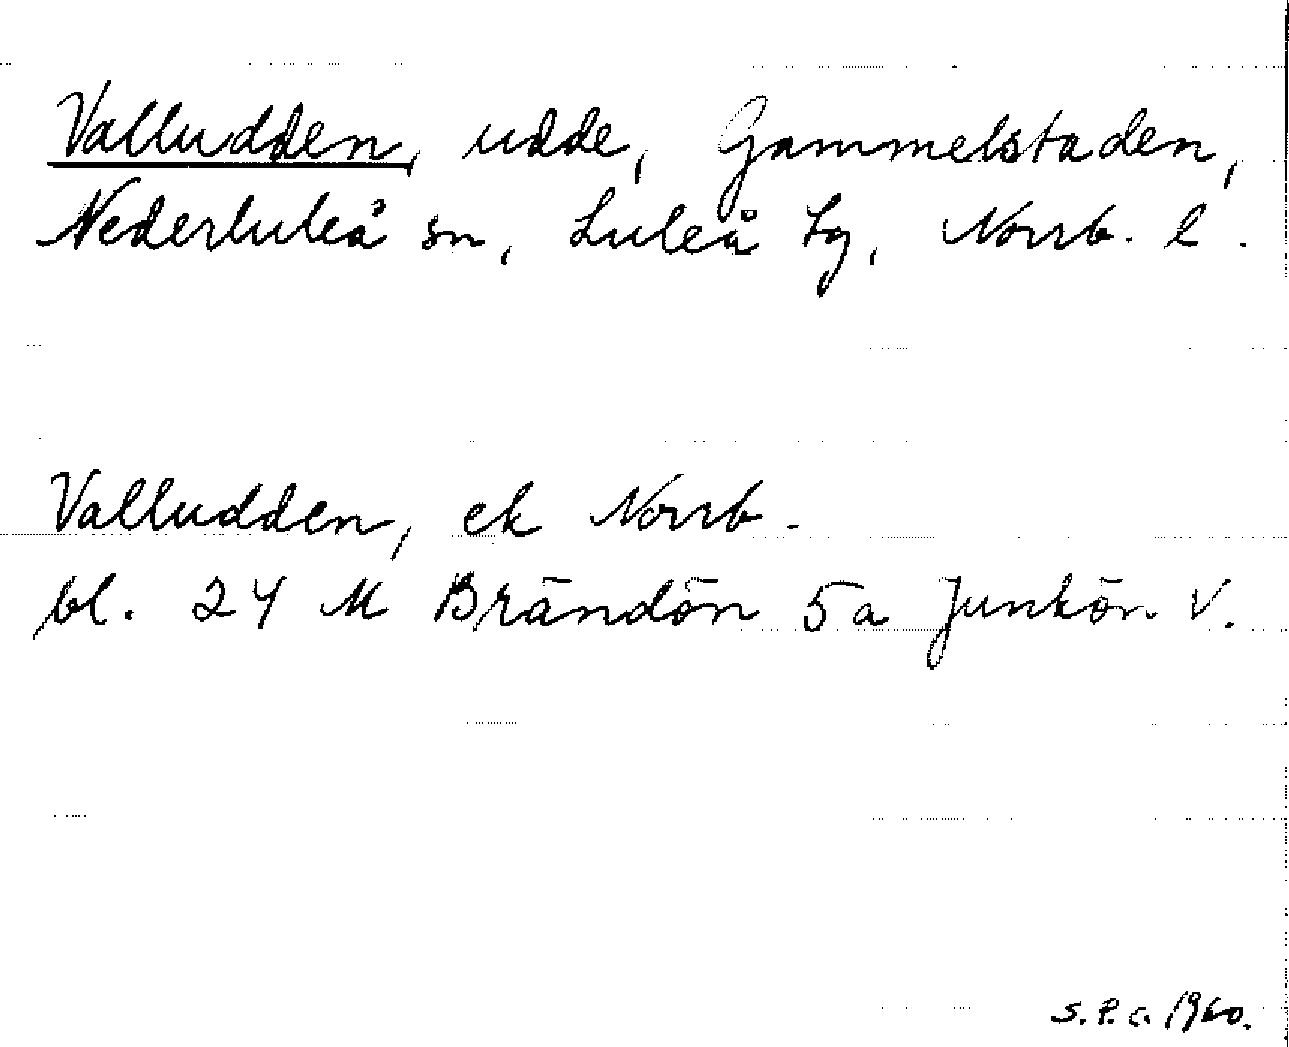 Valludden, udde, Gammelstaden,
Nederluleå sn, Luleå tg, Norrb. l.
Valludden, ek Norrb.
bl. 24 M Brändön 5a Junkön V.
S.P.C. 1960.